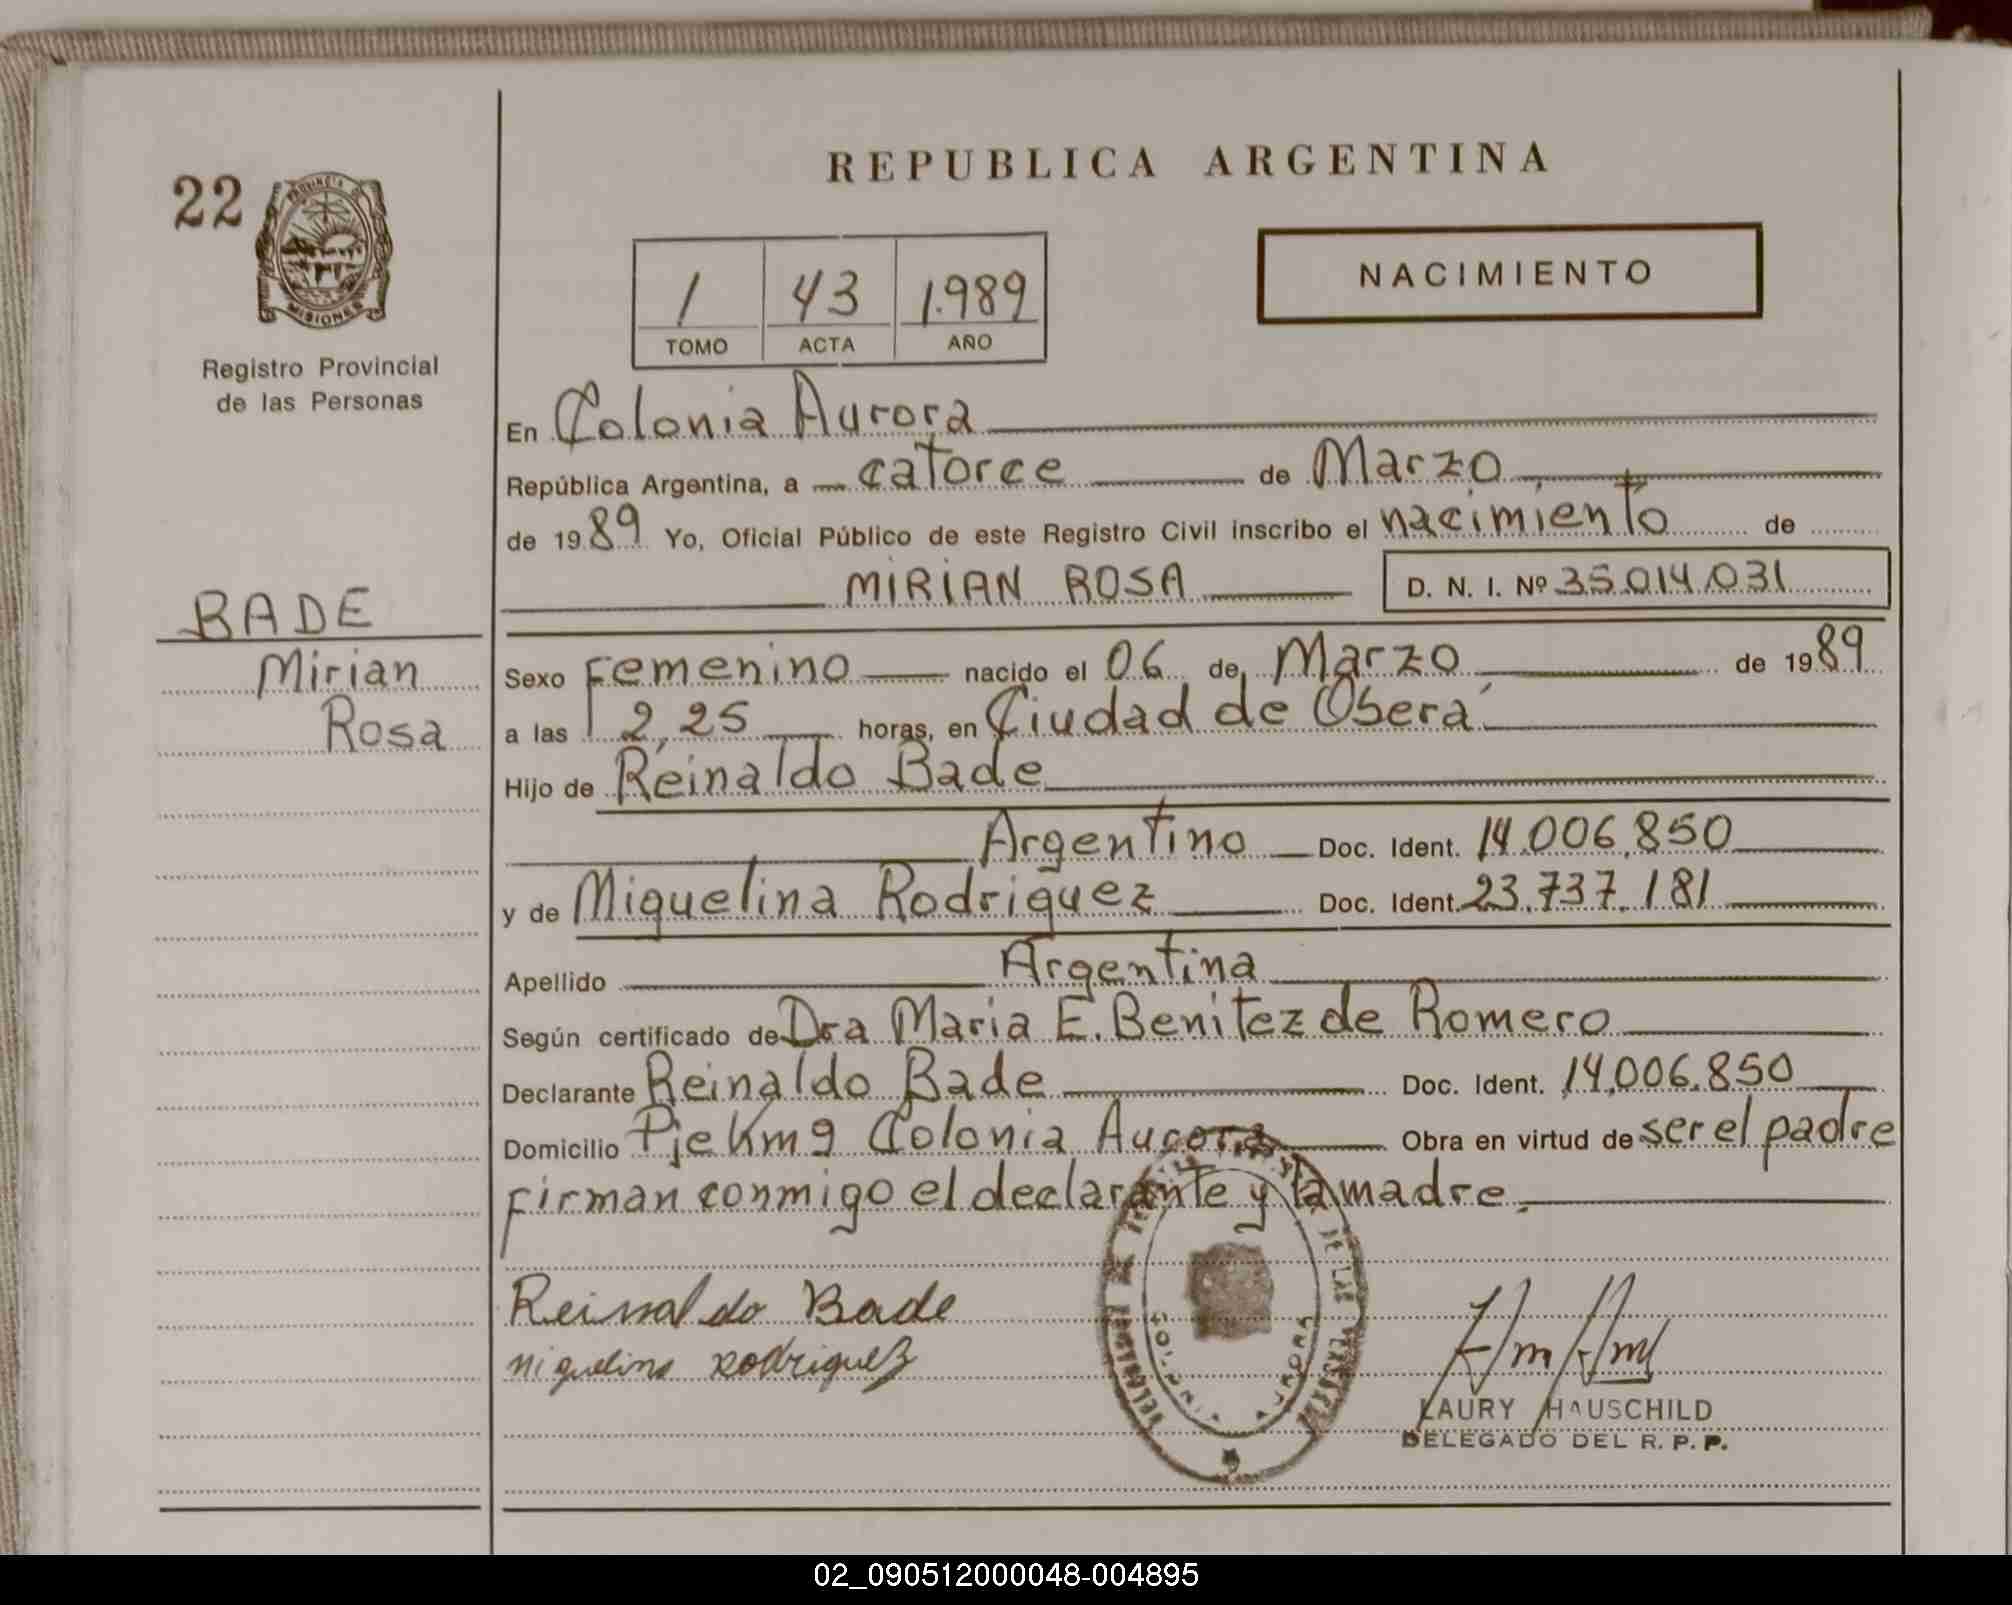 22
PROVINCIA DE
MISIONES
Registro Provincial
de las Personas
BADE
Mirian
Rosa
REPUBLICA ARGENTINA
1 43 1.989
TOMO ACTA AÑO
NACIMIENTO
En Colonia Aurora
República Argentina, a catorce de Marzo
de 1989 Yo, Oficial Público de este Registro Civil inscribo el nacimiento de
MIRIAN ROSA D. N. I. Nº 35.014.031
Sexo Femenino nacido el 06 de Marzo de 1989
a las 2,25 horas, en Ciudad de Oberá
Hijo de Reinaldo Bade
Argentino Doc. Ident. 14.006.850
y de Miguelina Rodriguez Doc. Ident. 23.737.181
Apellido Argentina
Según certificado de Dra Maria E. Benitez de Romero
Declarante Reinaldo Bade Doc. Ident. 14.006.850
Domicilio Pje Km 9 Colonia Aurora Obra en virtud de ser el padre
firman conmigo el declarante y la madre.
Reinaldo Bade
Miguelina Rodriguez
DE LAS PERSONAS
COLONIA AURORA
LAURY HAUSCHILD
DELEGADO DEL R. P. P.
02_090512000048-004895